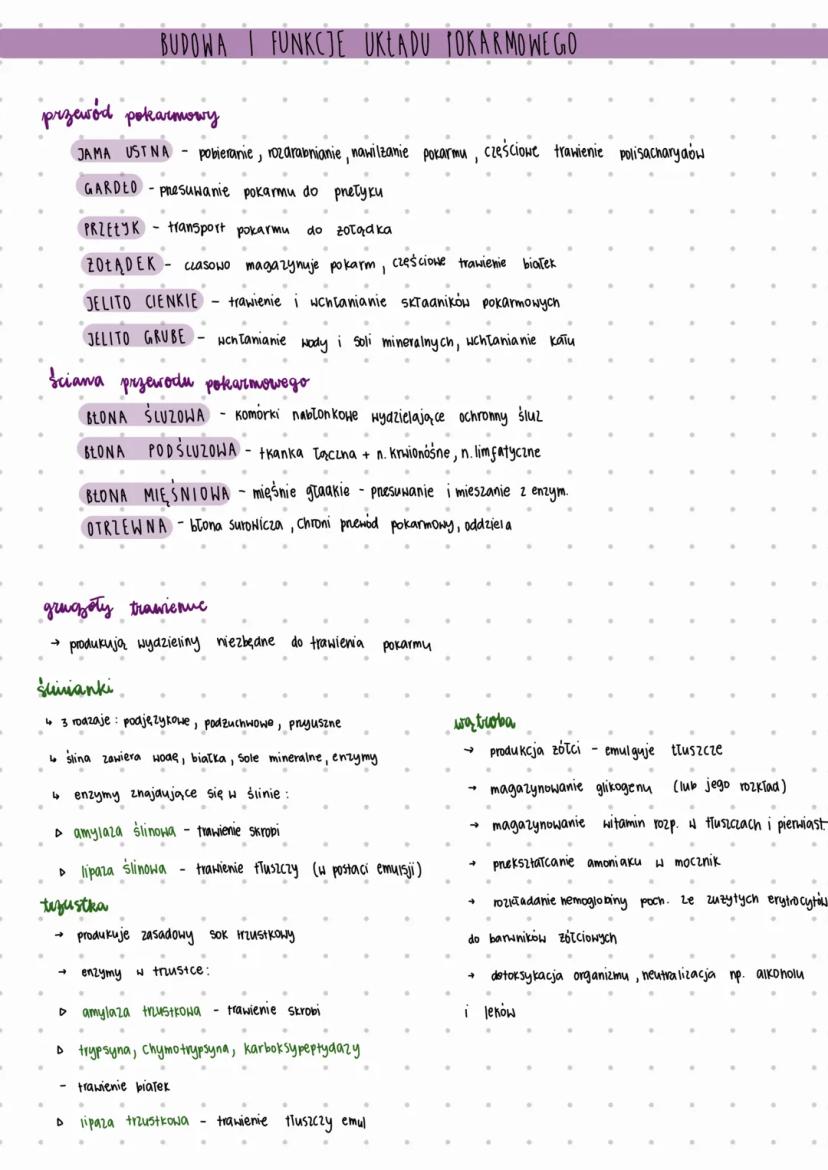 BUDOWA I FUNKCJE UKŁADU POKARMOWEGO
przewód pokarmowy
JAMA USTNA - pobieranie, rozdrabnianie, nawilżanie pokarmu, częściowe trawienie polisacharydów
GARDŁO - przesuwanie pokarmu do przełyku
PRZEŁYK - transport pokarmu do żołądka
ŻOŁĄDEK - czasowo magazynuje pokarm, częściowe trawienie białek
JELITO CIENKIE - trawienie i wchłanianie składników pokarmowych
JELITO GRUBE - wchłanianie wody i soli mineralnych, wchłanianie kału
ściana przewodu pokarmowego
BŁONA ŚLUZOWA - komórki nabłonkowe wydzielające ochronny śluz
BŁONA PODŚLUZOWA - tkanka łączna + n. krwionośne, n. limfatyczne
BŁONA MIĘŚNIOWA - mięśnie gładkie - przesuwanie i mieszanie z enzym.
OTRZEWNA - błona surowicza, chroni przewód pokarmowy, oddziela
gruczoły trawienne
→ produkują wydzieliny niezbędne do trawienia pokarmu
ślinianki
↳ 3 rodzaje: podjęzykowe, podżuchwowe, przyuszne
↳ ślina zawiera wodę, białka, sole mineralne, enzymy
↳ enzymy znajdujące się w ślinie:
▷ amylaza ślinowa - trawienie skrobi
▷ lipaza ślinowa - trawienie tłuszczy (w postaci emulsji)
trzustka
→ produkuje zasadowy sok trzustkowy
→ enzymy w trzustce:
▷ amylaza trzustkowa - trawienie skrobi
▷ trypsyna, chymotrypsyna, karboksypeptydazy
- trawienie białek
▷ lipaza trzustkowa - trawienie tłuszczy emul
wątroba
→ produkcja żółci - emulguje tłuszcze
→ magazynowanie glikogenu (lub jego rozkład)
→ magazynowanie witamin rozp. w tłuszczach i pierwiast.
→ przekształcanie amoniaku w mocznik
→ rozkładanie hemoglobiny poch. ze zużytych erytrocytów
do barwników żółciowych
→ detoksykacja organizmu, neutralizacja np. alkoholu
i leków